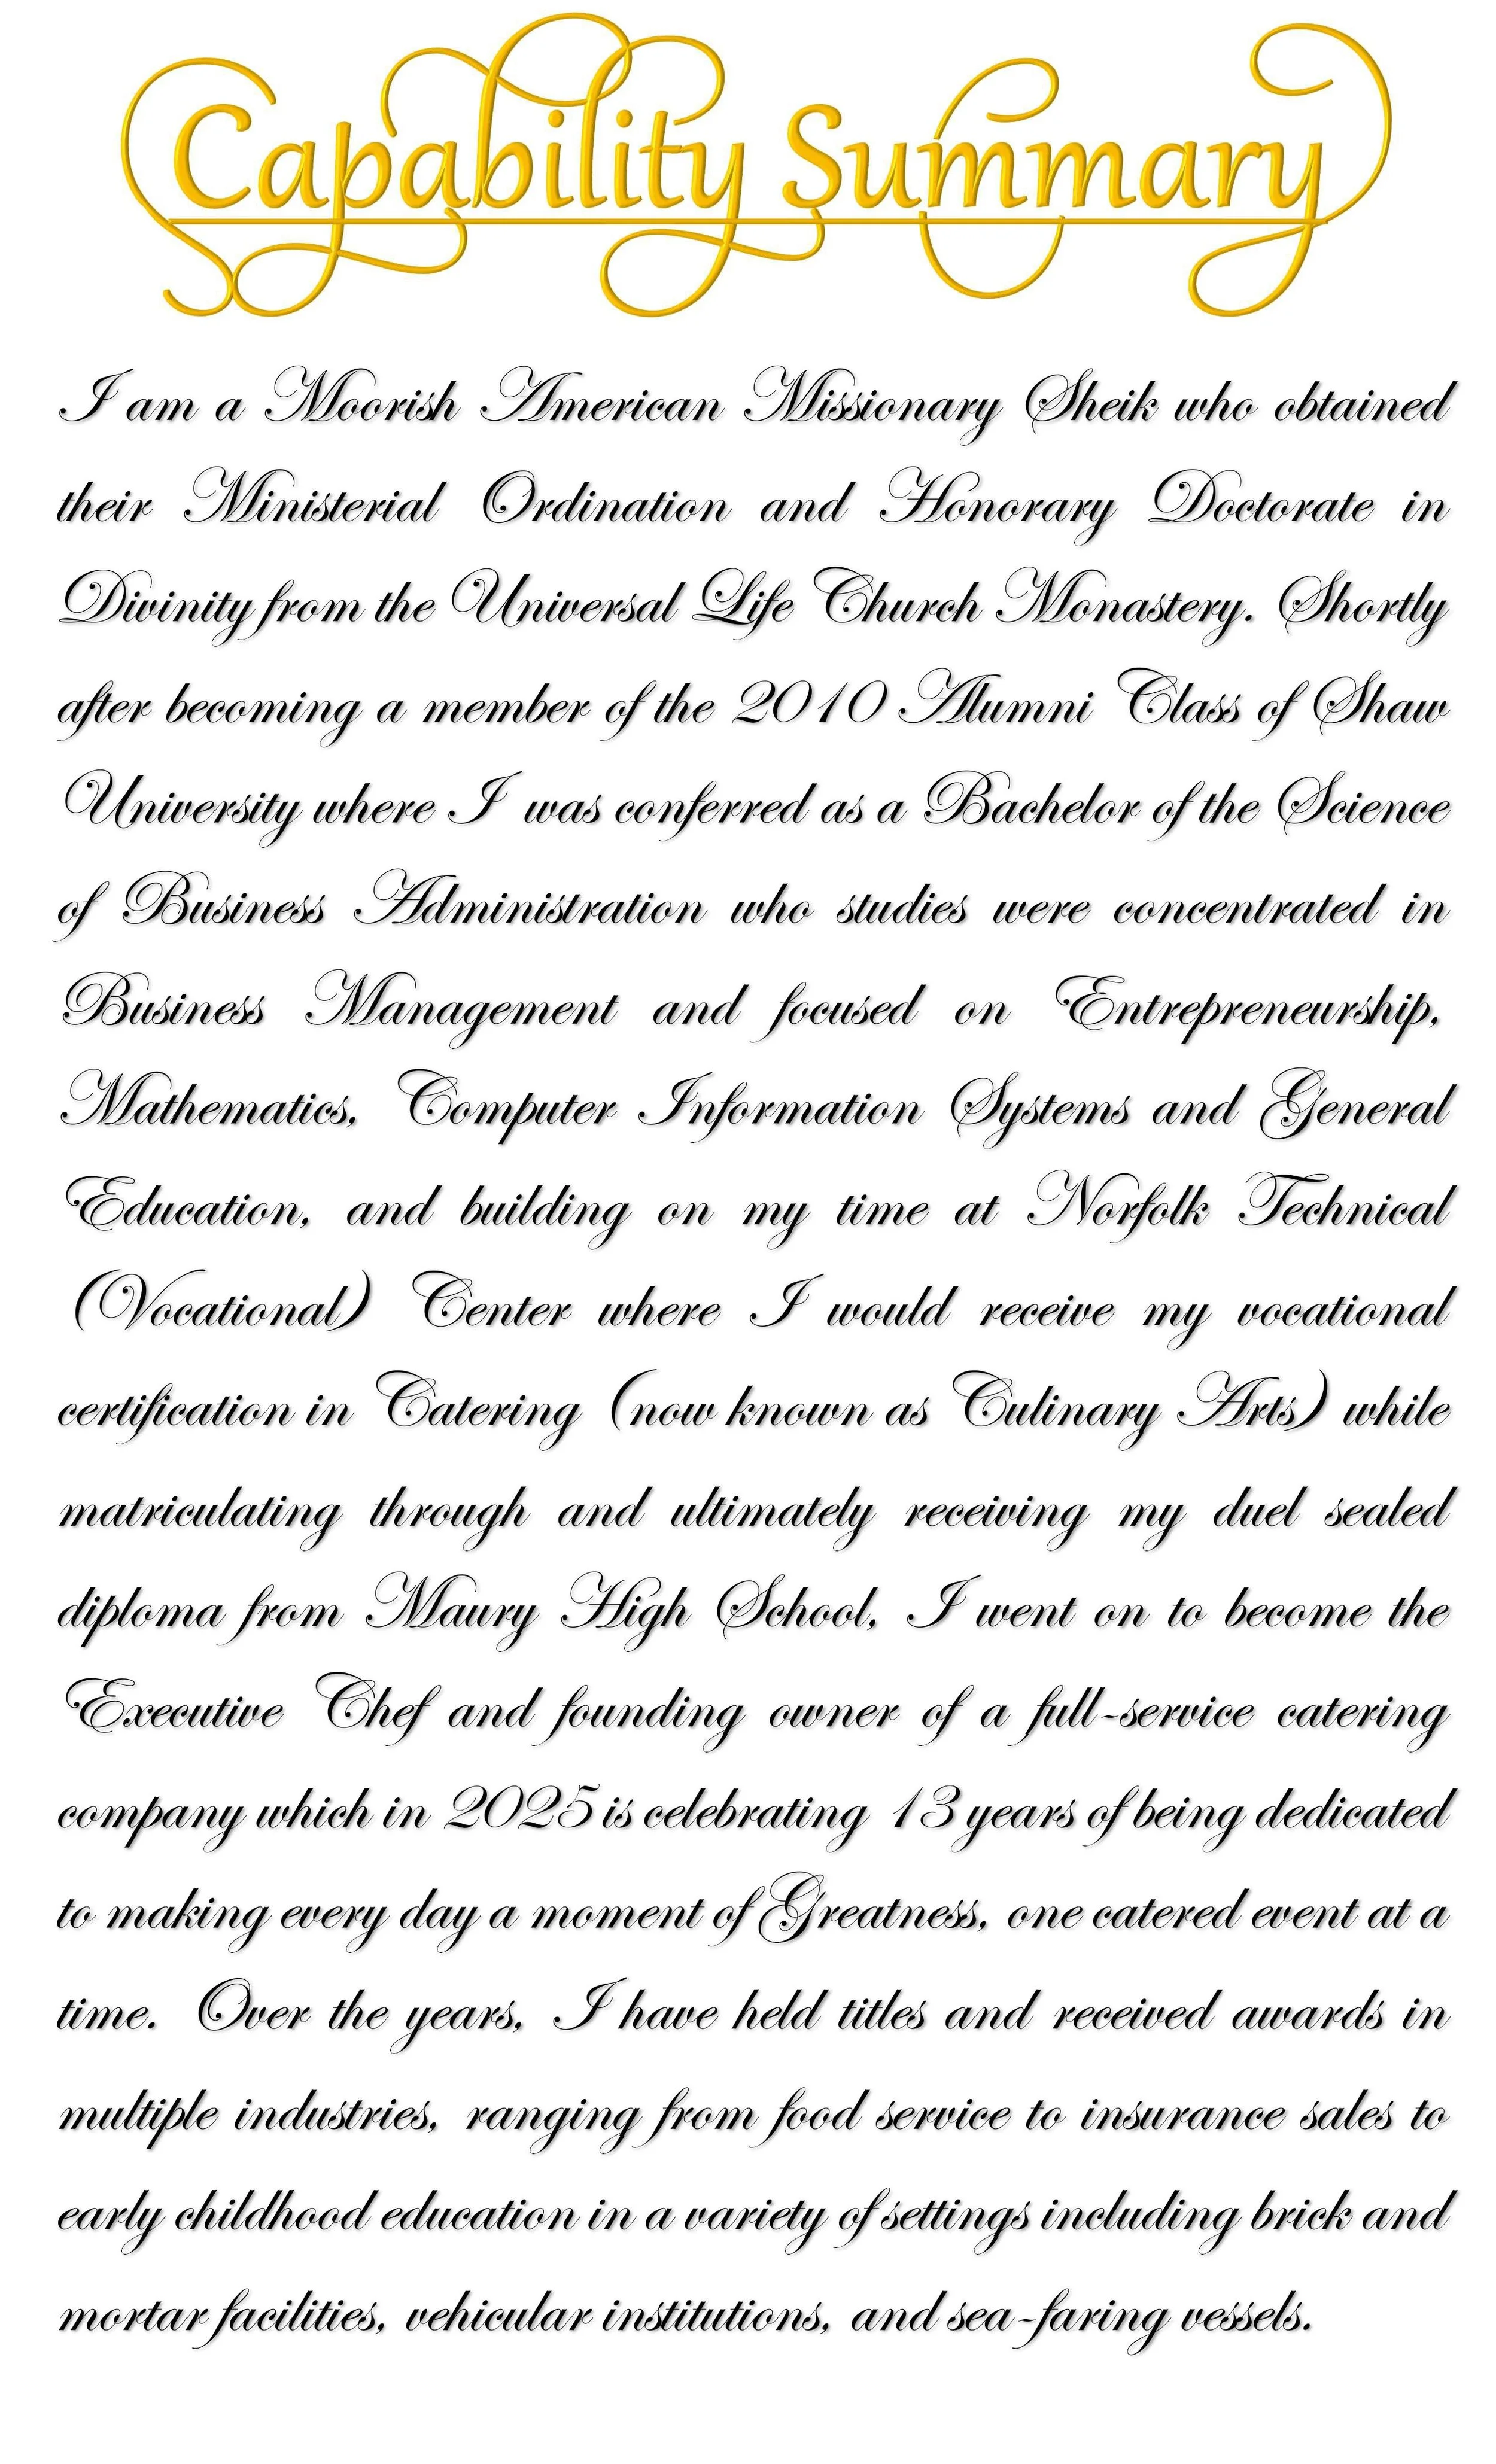 Capability Summary
I am a Moorish American Missionary Sheik who obtained
their Ministerial Ordination and Honorary Doctorate in
Divinity from the Universal Life Church Monastery. Shortly
after becoming a member of the 2010 Alumni Class of Shaw
University where I was conferred as a Bachelor of the Science
of Business Administration who studies were concentrated in
Business Management and focused on Entrepreneurship,
Mathematics, Computer Information Systems and General
Education, and building on my time at Norfolk Technical
(Vocational) Center where I would receive my vocational
certification in Catering (now known as Culinary Arts) while
matriculating through and ultimately receiving my duel sealed
diploma from Maury High School, I went on to become the
Executive Chef and founding owner of a full-service catering
company which in 2025 is celebrating 13 years of being dedicated
to making every day a moment of Greatness, one catered event at a
time. Over the years, I have held titles and received awards in
multiple industries, ranging from food service to insurance sales to
early childhood education in a variety of settings including brick and
mortar facilities, vehicular institutions, and sea-faring vessels.